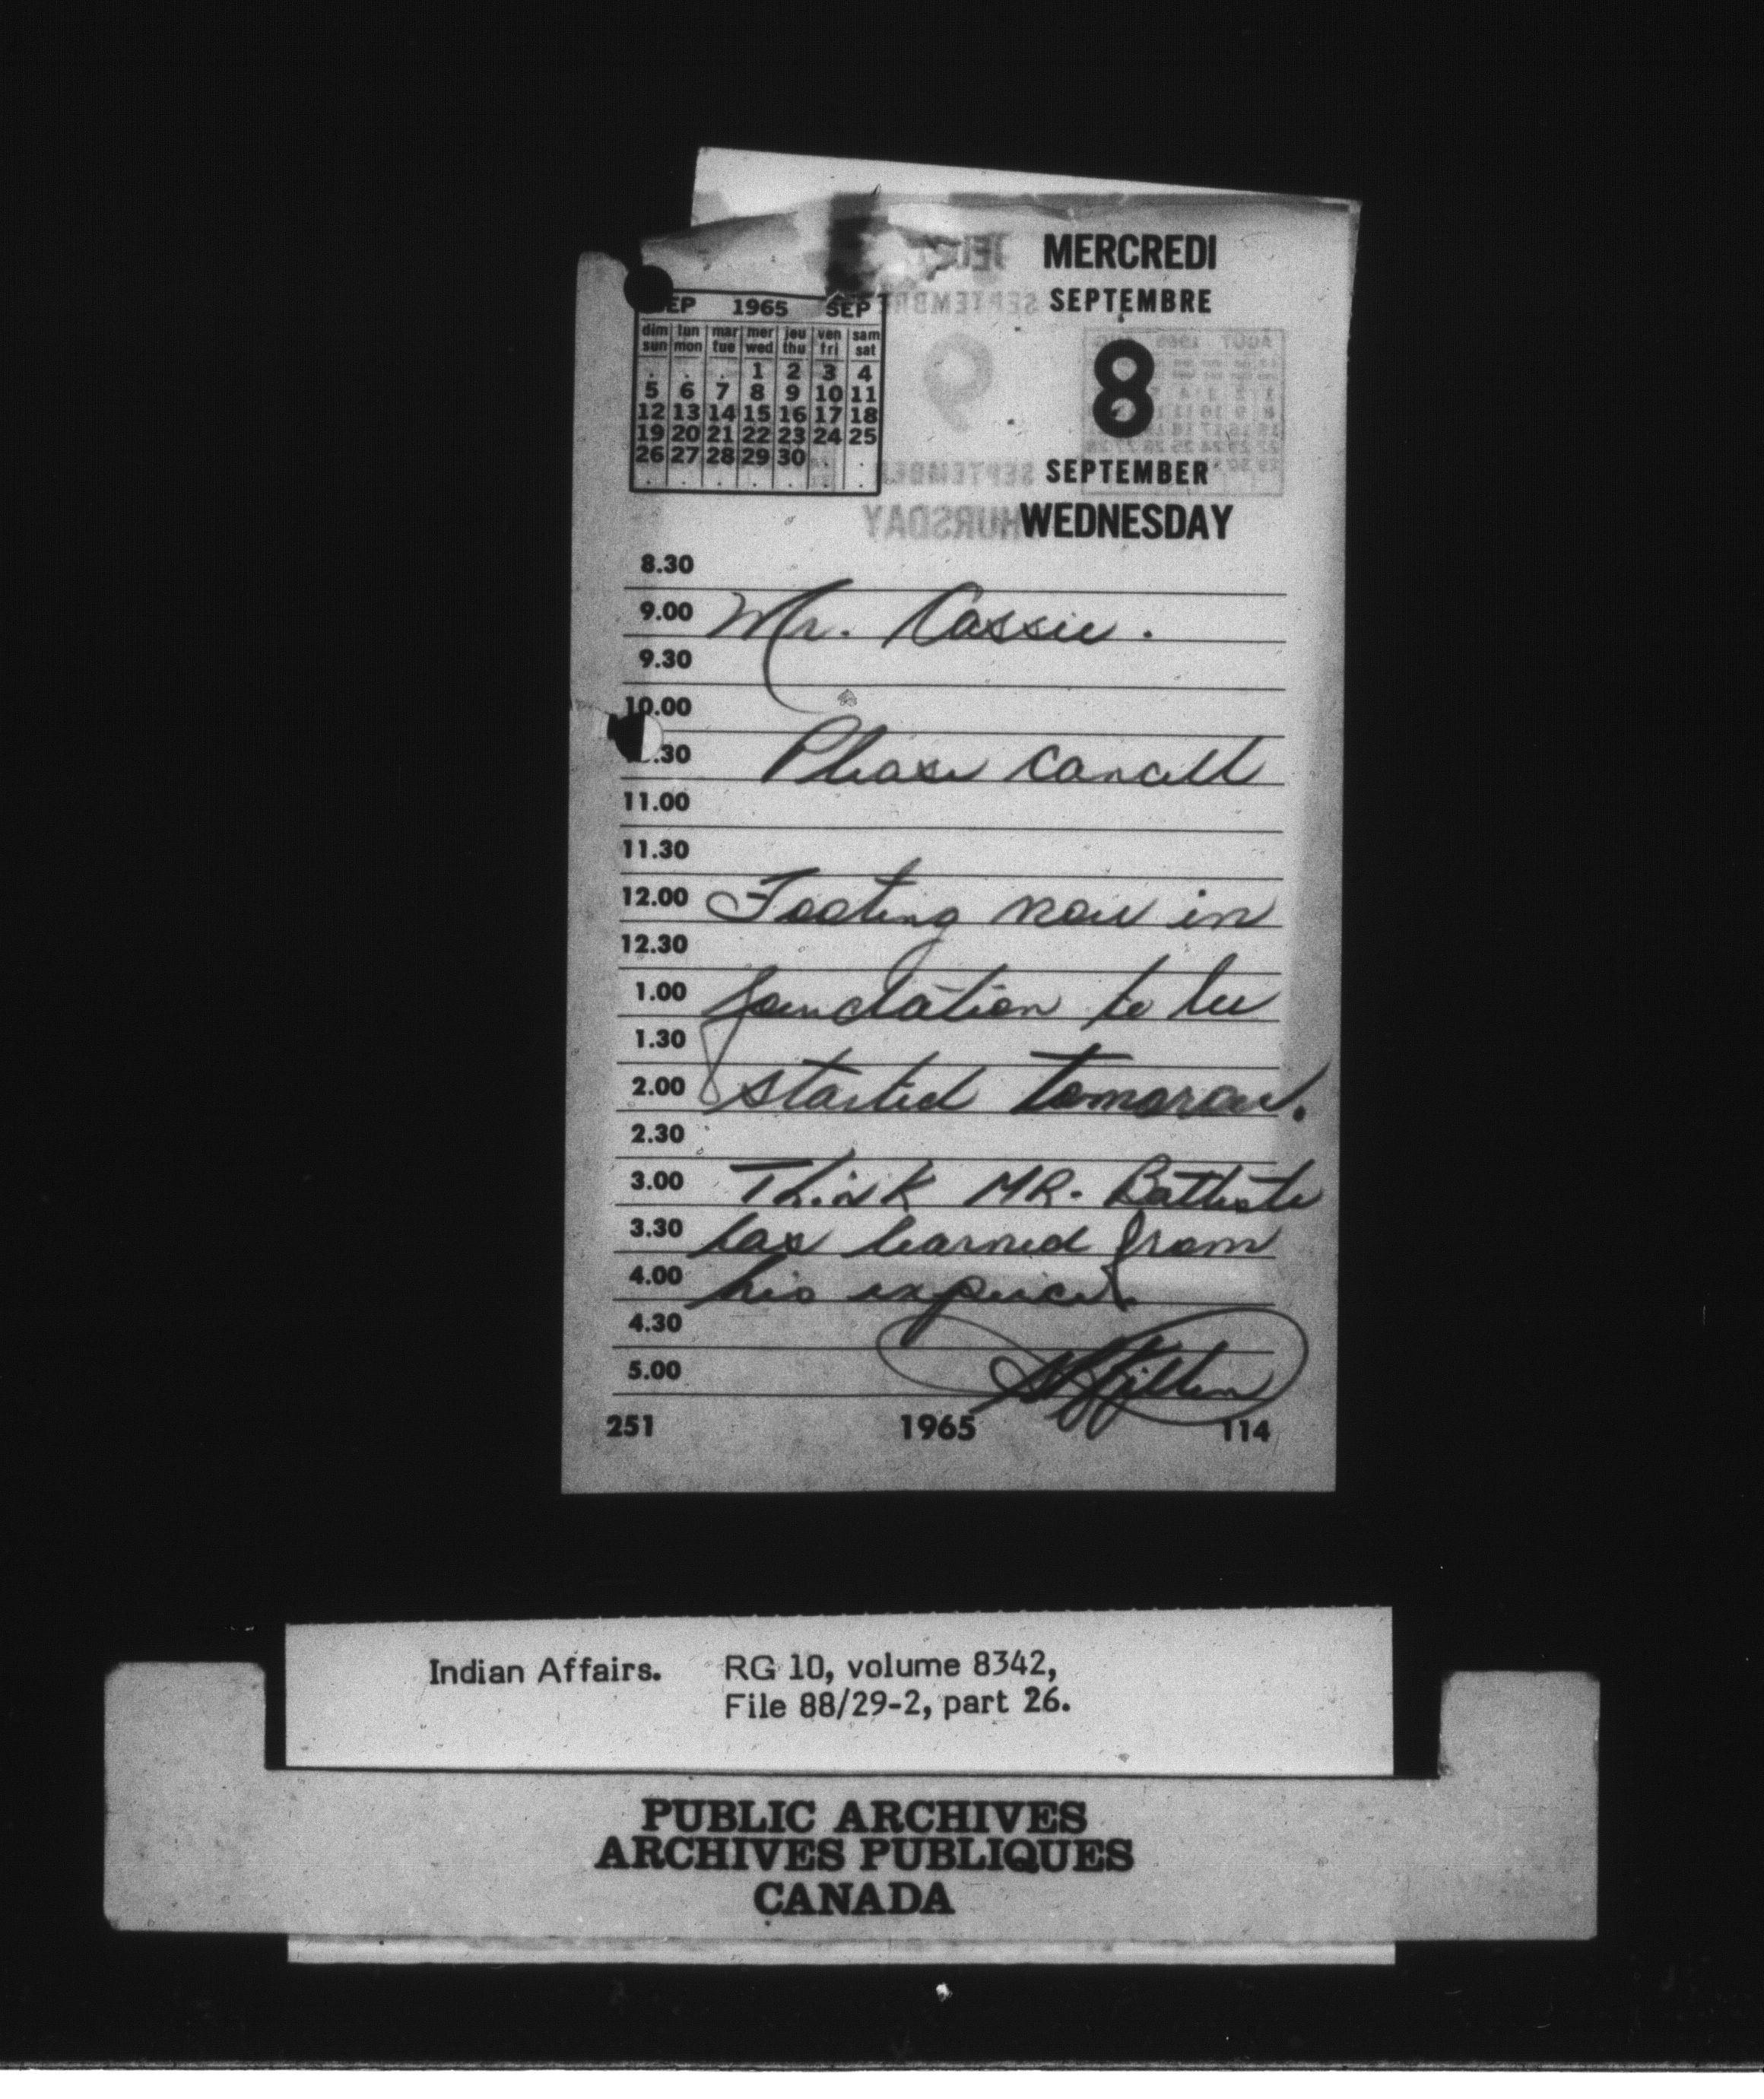 MERCREDI
SEPTEMBRE
8
SEPTEMBER
WEDNESDAY
SEP 1965 SEP
dim lun mar mer jeu ven sam
sun mon tue wed thu fri sat
1 2 3 4
5 6 7 8 9 10 11
12 13 14 15 16 17 18
19 20 21 22 23 24 25
26 27 28 29 30
8.30
9.00 Mr. Cassie.
9.30
10.00
.30 Please cancell
11.00
11.30
12.00 Footing now in
12.30
1.00 foundation to be
1.30
2.00 started tomorow.
2.30
3.00 Think MR. Battiste
3.30 has learned from
4.00 his expeice.
4.30
5.00
251 1965 114
Indian Affairs. RG 10, volume 8342,
File 88/29-2, part 26.
PUBLIC ARCHIVES
ARCHIVES PUBLIQUES
CANADA